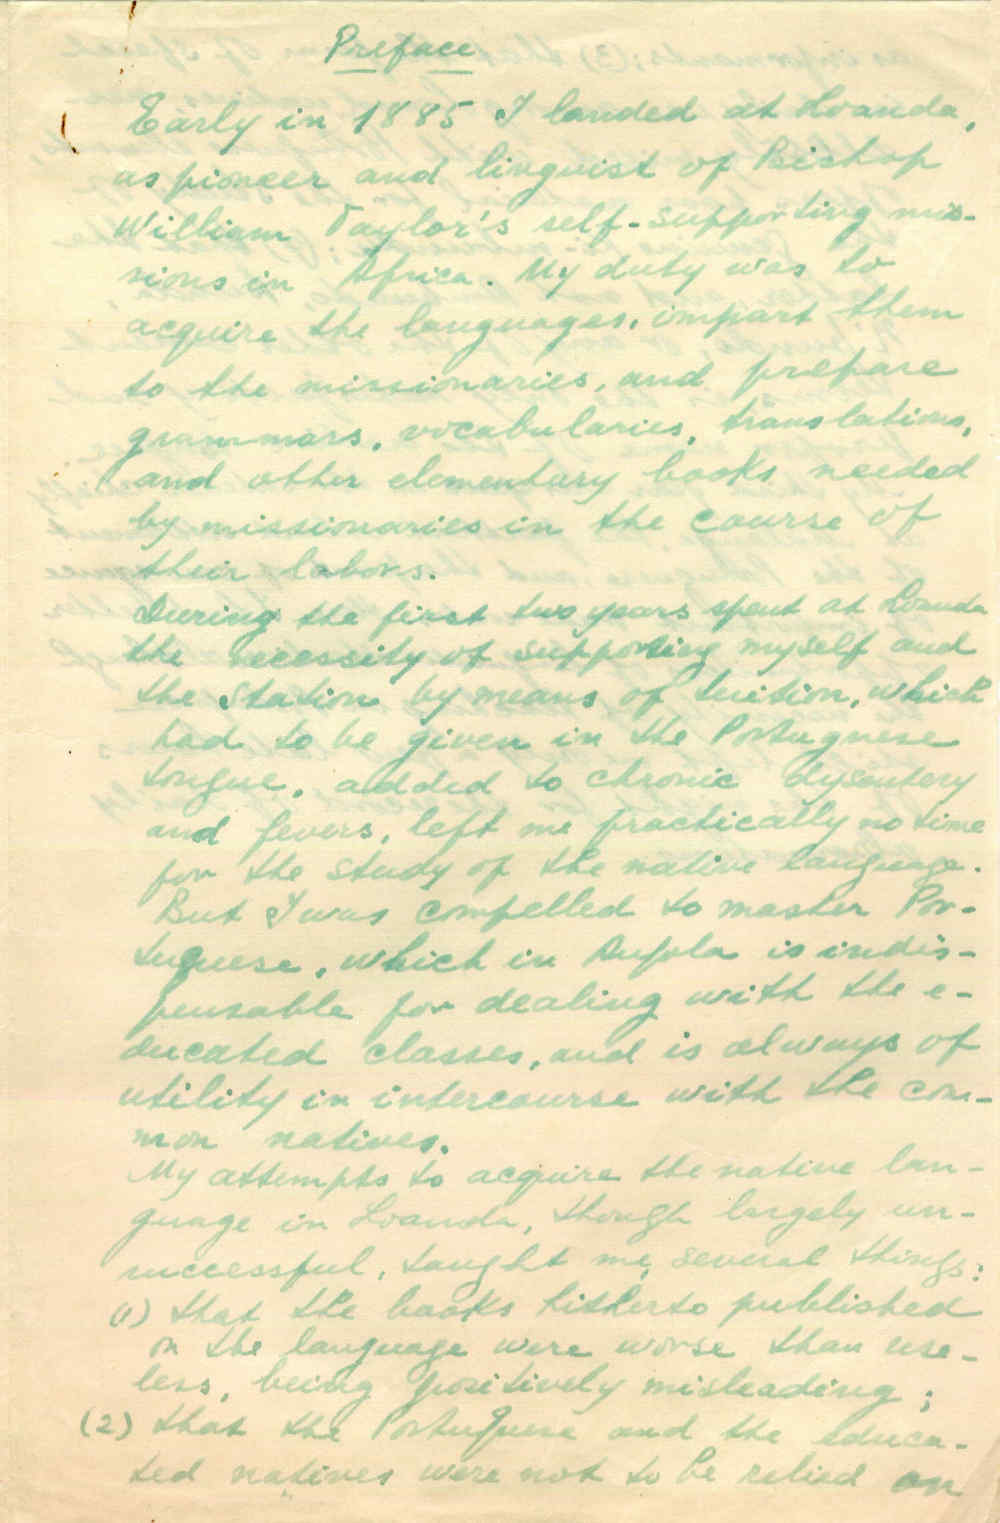 Preface
Early in 1885 I landed at Loanda,
as pioneer and linguist of Bishop
William Taylor's self-supporting mis-
sions in Africa. My duty was to
acquire the languages, impart them
to the missionaries, and prepare
grammars, vocabularies, translations,
and other elementary books needed
by missionaries in the course of
their labors.
During the first two years spent at Loanda
the necessity of supporting myself and
the station by means of tuition, which
had to be given in the Portuguese
tongue, added to chronic dysentery
and fevers, left me practically no time
for the study of the native language.
But I was compelled to master Por-
tuguese, which in is indis-
pensable for dealing with the e-
ducated classes, and is always of
utility in intercourse with the com-
mon natives.
My attempts to acquire the native lan-
guage in Loanda, though largely un-
successful, taught me several things:
(1) that the books hitherto published
on the language were worse than use-
less, being positively misleading;
(2) that the Portuguese and the educa-
ted natives were not to be relied on